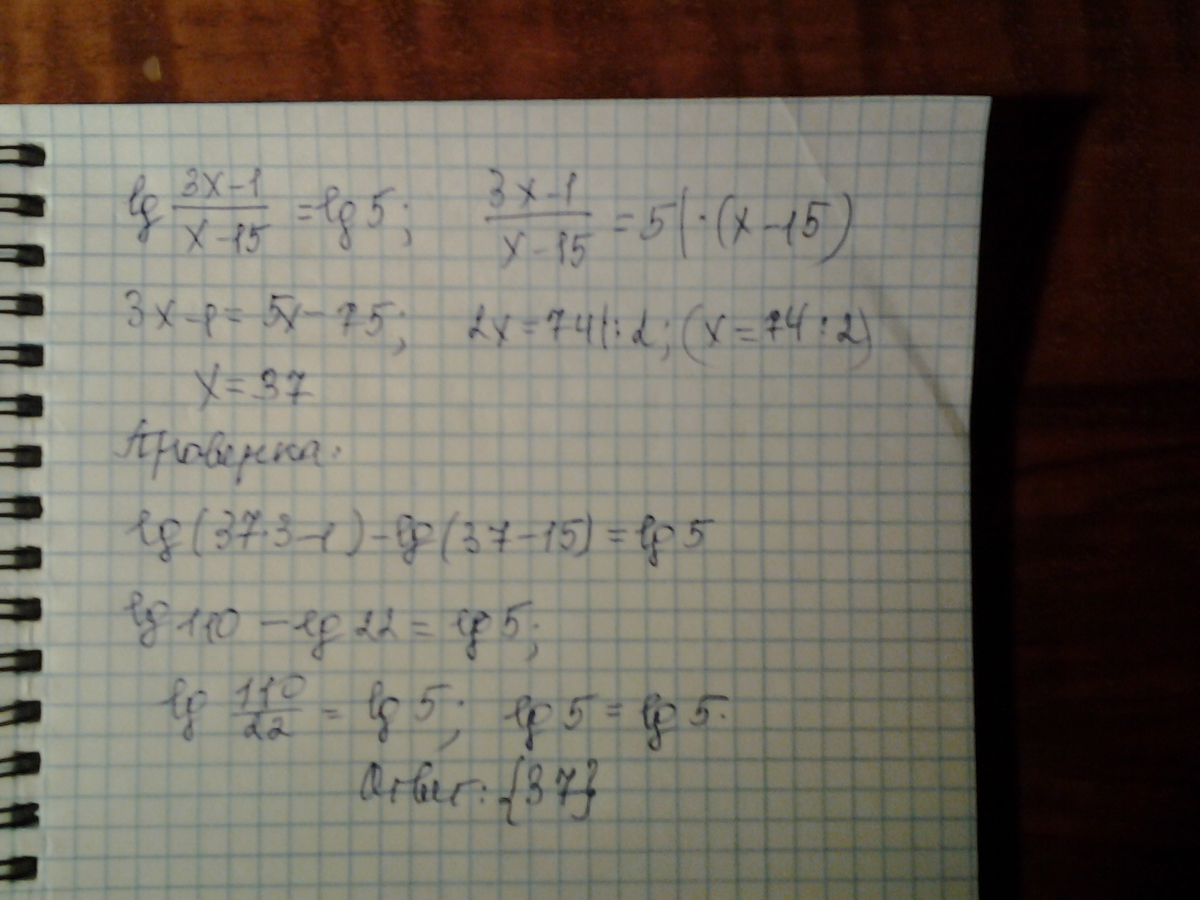 lg (3x-1)/(x-15) = lg 5; (3x-1)/(x-15) = 5 | · (x-15)
3x-1 = 5x-75; 2x = 74 |:2; (x = 74:2)
x = 37
Проверка:
lg(37·3-1) - lg(37-15) = lg 5
lg 110 - lg 22 = lg 5;
lg 110/22 = lg 5; lg 5 = lg 5.
Ответ: {37}